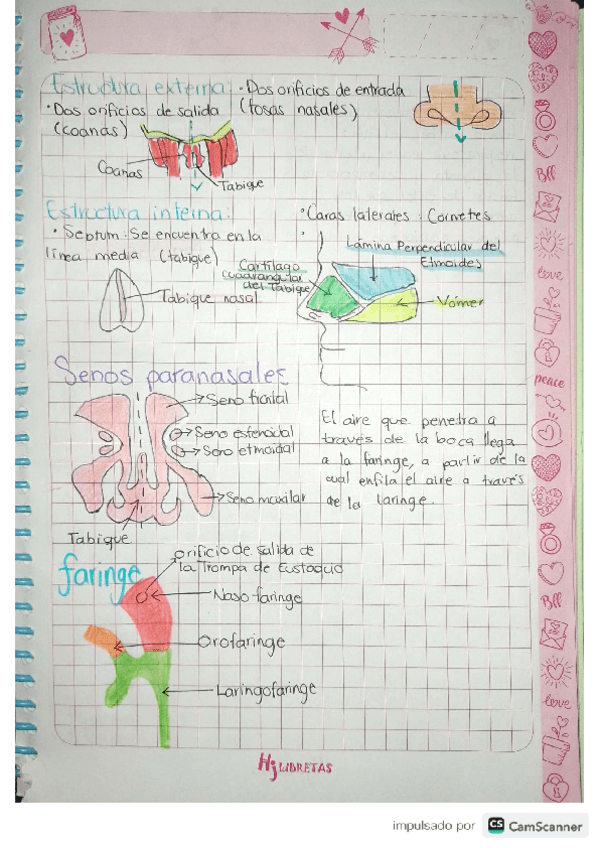 Estructura externa: • Dos orificios de entrada
• Dos orificios de salida (fosas nasales)
(coanas)
Coanas
Tabique
Estructura interna:
• Septum: Se encuentra en la
línea media (tabique)
Tabique nasal
• Caras laterales: Cornetes
Lámina Perpendicular del
Etmoides
Cartílago
cuadrangular
del Tabique
Vómer
Senos paranasales
Seno frontal
Seno esfenoidal
Seno etmoidal
Seno maxilar
Tabique
El aire que penetra a
través de la boca llega
a la faringe, a partir de la
cual enfila el aire a través
de la laringe.
faringe
orificio de salida de
la Trompa de Eustaquio
Naso faringe
Orofaringe
Laringofaringe
Hj LIBRETAS
Bff
love
peace
Bff
love
impulsado por CS CamScanner